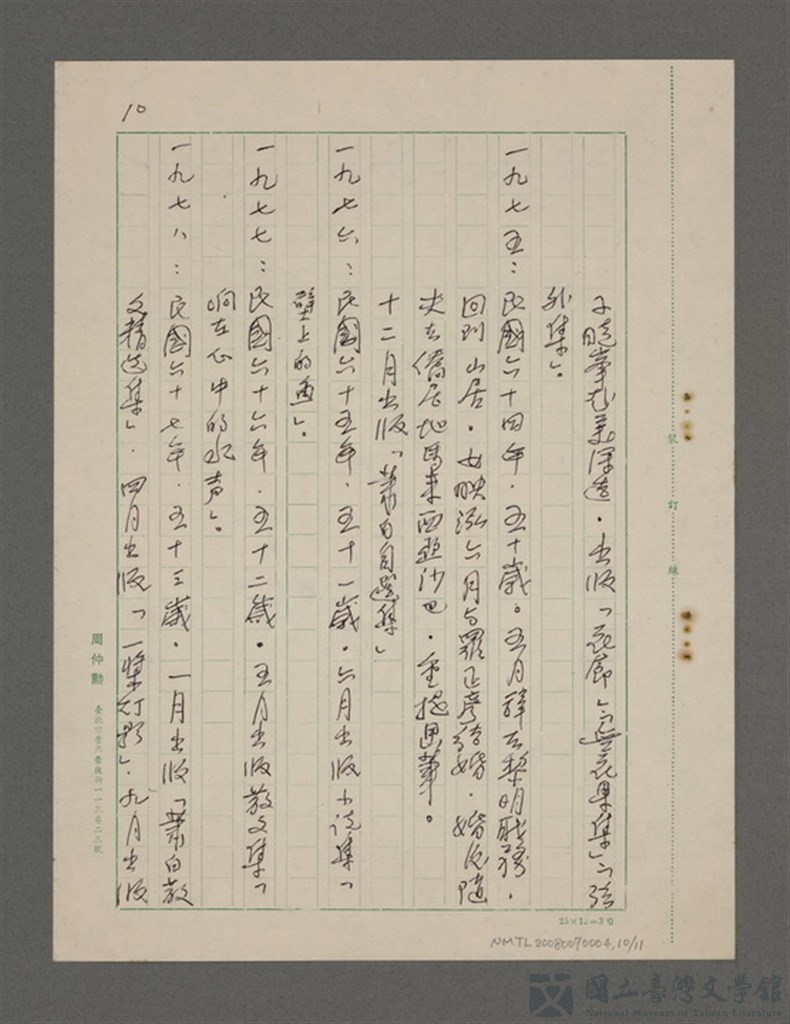 10
子曉峯赴美深造．出版「花廊」「無花果集」「絃
外集」。
一九七五：民國六十四年．五十歲。五月辞去黎明职務．
回到山居．女映泓六月与羅正彥結婚．婚后隨
夫去僑居地馬来西亚沙巴．重提畫筆。
十二月出版「蕭白自選集」
一九七六：民國六十五年．五十一歲．六月出版小説集「
壁上的魚」。
一九七七：民國六十六年．五十二歲．五月出版散文集「
响在心中的水声」。
一九七八：民國六十七年．五十三歲．一月出版「蕭白散
文精选集」．四月出版「一槳灯影」．九月出版
裝訂線
周仲勳
25×12=300
NMTL20080070004,10/11
國立臺灣文學館
National Museum of Taiwan Literature